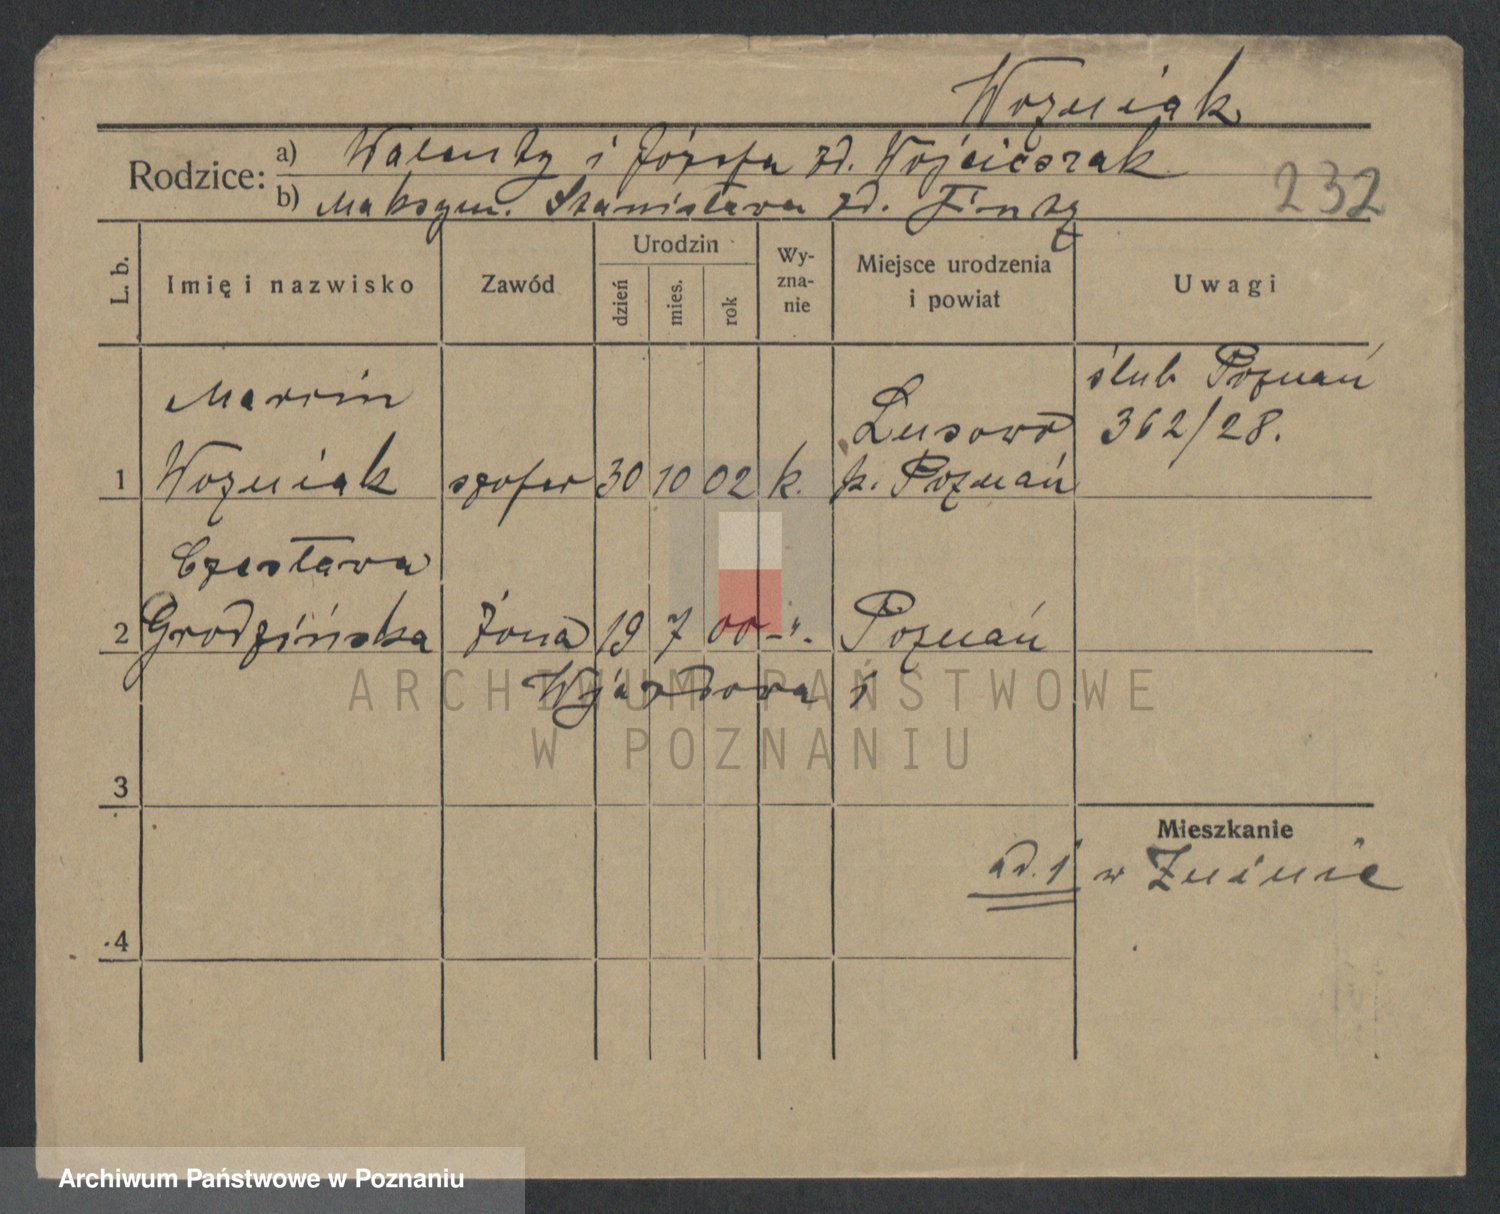 Wozniak
Rodzice: a) Walenty i Józefa zd. Wojcieszak
b) Maksym. Stanisława zd.
232
L. b. Imię i nazwisko Zawód Urodzin dzień mies. rok Wyznanie Miejsce urodzenia i powiat Uwagi
Marcin Lusowo ślub Poznań
362/28.
1 Wozniak szofer 30 10 02 k. p. Poznań
Czesława
2 Grodzińska żona 19 7 00 -"- Poznań
Wjazdowa 1
ARCHIWUM PAŃSTWOWE
W POZNANIU
3
Mieszkanie
ad. 1 w Żninie
4
Archiwum Państwowe w Poznaniu